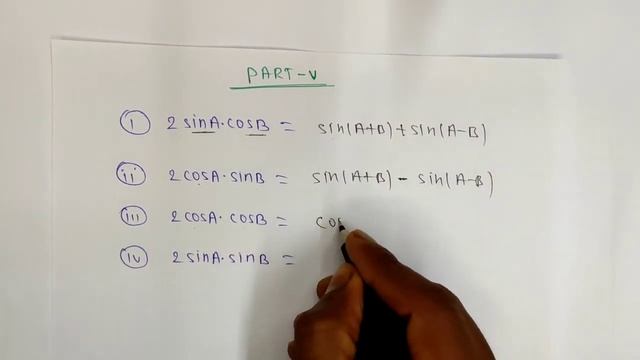 PART-V
i 2 sinA·cosB = sin(A+B)+sin(A-B)
ii 2 cosA·sinB = sin(A+B) - sin(A-B)
iii 2 cosA·cosB = cos
iv 2 sinA·sinB =